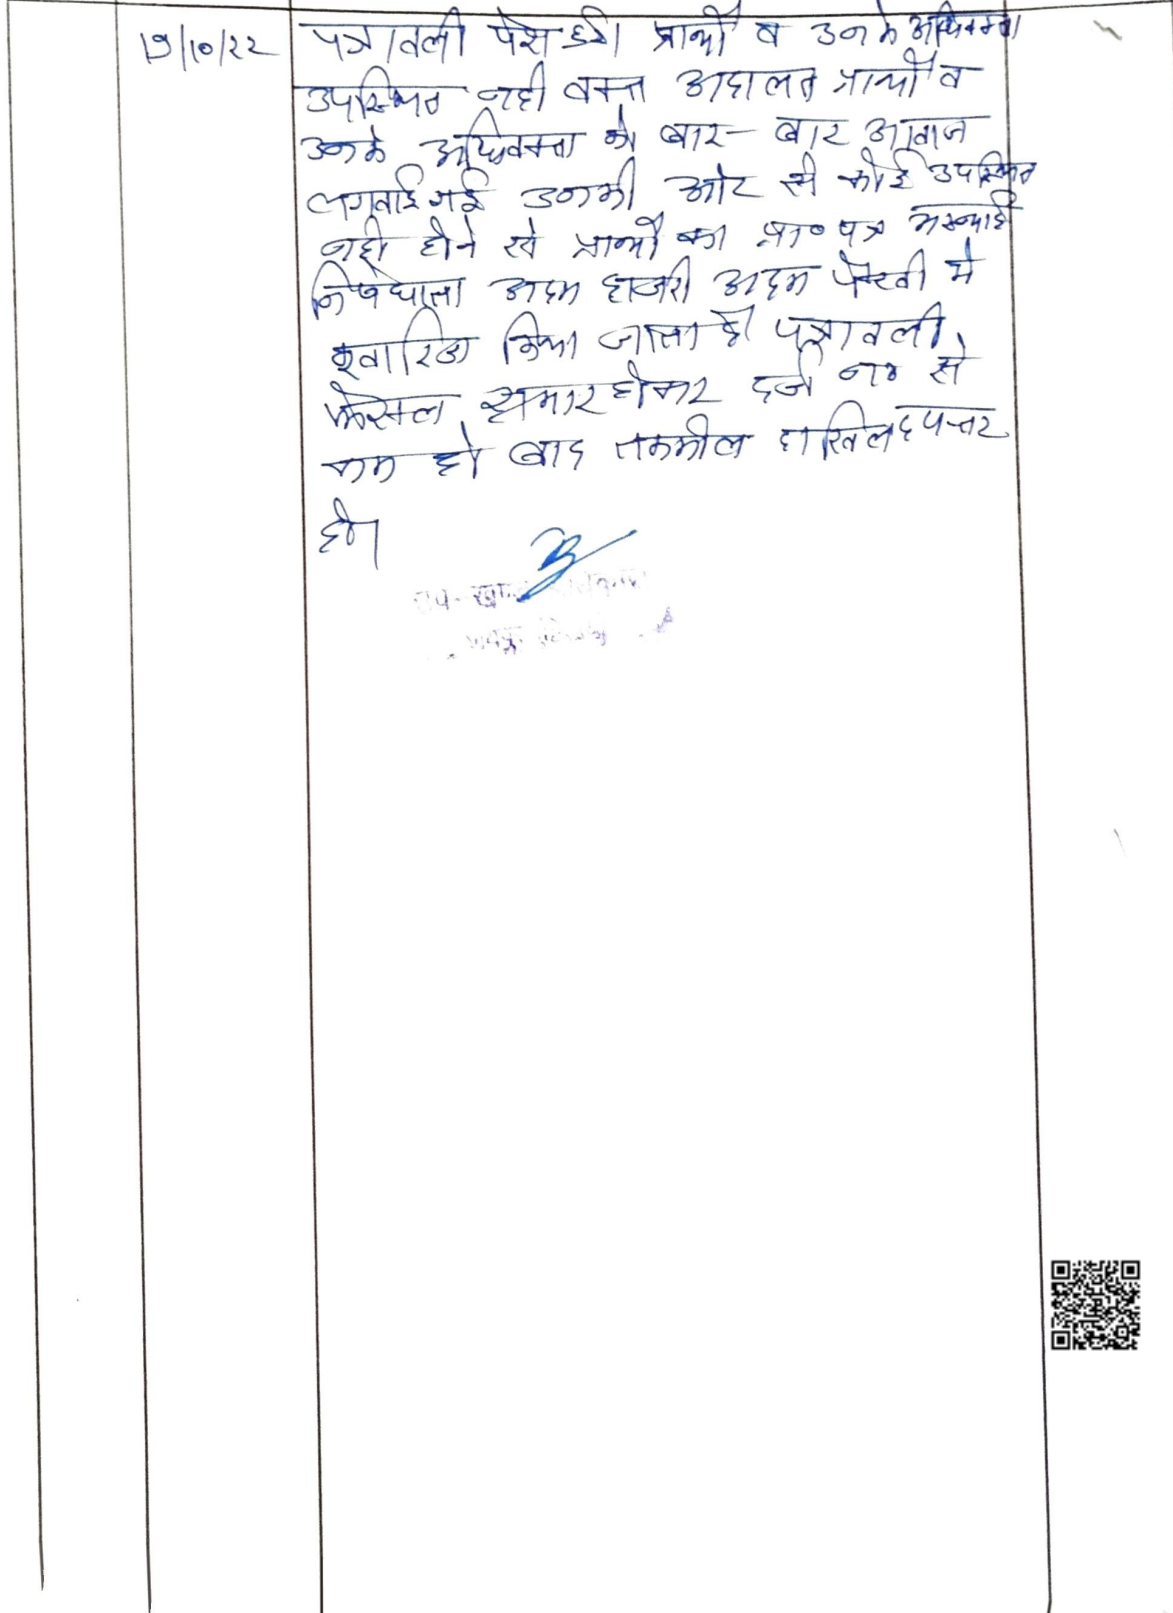 19/10/22 पत्रावली पेश हुई। प्रार्थी व उनके अधिवक्ता
उपस्थित नही वक्त अदालत प्रार्थी व
उनके अधिवक्ता को बार- बार आवाज
लगवाई गई उनकी ओर से कोई उपस्थित
नही होने से प्रार्थी का प्रा० पत्र अस्थाई
निषेधाज्ञा अदम हाजरी अदम पैरवी मे
खारिज किया जाता है। पत्रावली
फैसल शुमार होकर दर्ज न० से
कम हो बाद तकमील दाखिल दफ्तर
हो।
उप-खण्ड